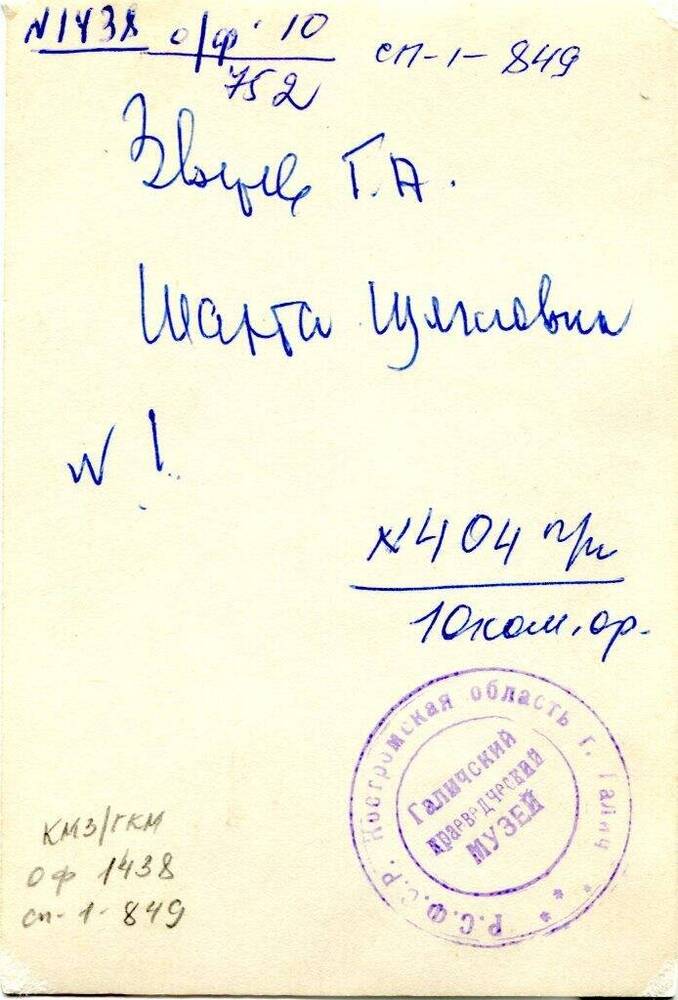 №1438 о/ф 10
752
сп-1-849
Т.А.
Шахта
№ 1
№404
10ком.ор.
Р.С.Ф.С.Р. Костромская область г. Галич
Галичский
краеведческий
МУЗЕЙ
КМЗ/ГКМ
оф 1438
сп-1-849